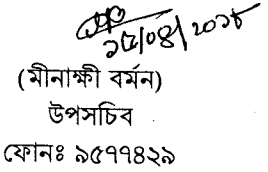 ১৫/০৪/২০১৮
(মীনাক্ষী বর্মন)
উপসচিব
ফোনঃ ৯৫৭৭৪২৯